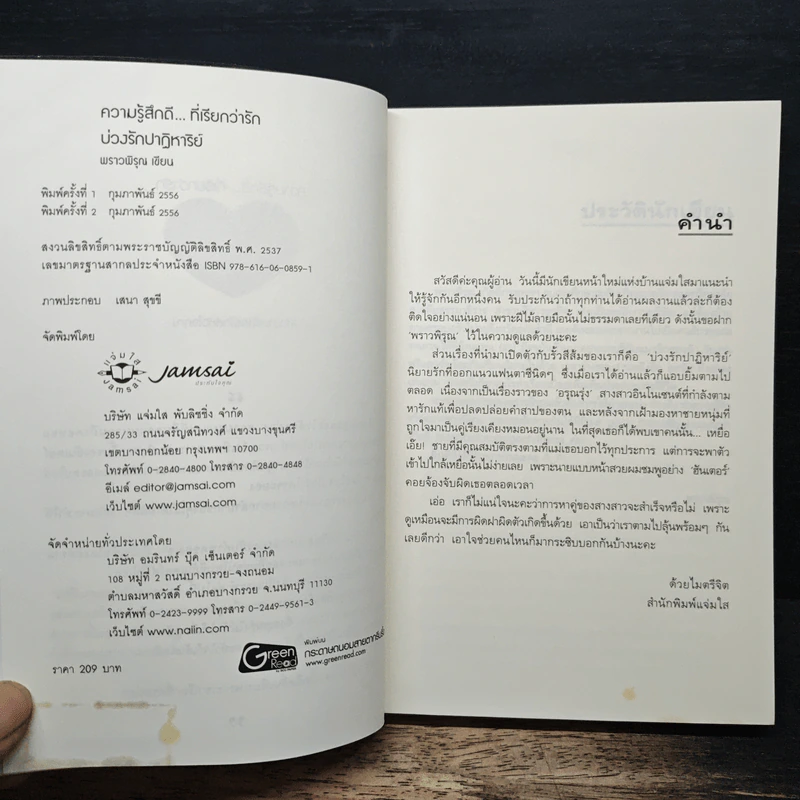 ความรู้สึกดี... ที่เรียกว่ารัก
บ่วงรักปาฏิหาริย์
พราวพิรุณ เขียน
พิมพ์ครั้งที่ 1 กุมภาพันธ์ 2556
พิมพ์ครั้งที่ 2 กุมภาพันธ์ 2556
สงวนลิขสิทธิ์ตามพระราชบัญญัติลิขสิทธิ์ พ.ศ. 2537
เลขมาตรฐานสากลประจำหนังสือ ISBN 978-616-06-0859-1
ภาพประกอบ เสนา สุขชี
จัดพิมพ์โดย
แจ่มใส
Jamsai
Jamsai
ประทับใจคุณ
บริษัท แจ่มใส พับลิชชิ่ง จำกัด
285/33 ถนนจรัญสนิทวงศ์ แขวงบางขุนศรี
เขตบางกอกน้อย กรุงเทพฯ 10700
โทรศัพท์ 0-2840-4800 โทรสาร 0-2840-4848
อีเมล์ editor@jamsai.com
เว็บไซต์ www.jamsai.com
จัดจำหน่ายทั่วประเทศโดย
บริษัท อมรินทร์ บุ๊ค เซ็นเตอร์ จำกัด
108 หมู่ที่ 2 ถนนบางกรวย-จงถนอม
ตำบลมหาสวัสดิ์ อำเภอบางกรวย จ.นนทบุรี 11130
โทรศัพท์ 0-2423-9999 โทรสาร 0-2449-9561-3
เว็บไซต์ www.naiin.com
ราคา 209 บาท
Green Read
พิมพ์บน
กระดาษถนอมสายตากรีนรี้ด
www.greenread.com
คำนำ
สวัสดีค่ะคุณผู้อ่าน วันนี้มีนักเขียนหน้าใหม่แห่งบ้านแจ่มใสมาแนะนำ
ให้รู้จักกันอีกหนึ่งคน รับประกันว่าถ้าทุกท่านได้อ่านผลงานแล้วล่ะก็ต้อง
ติดใจอย่างแน่นอน เพราะฝีไม้ลายมือนั้นไม่ธรรมดาเลยทีเดียว ดังนั้นขอฝาก
'พราวพิรุณ' ไว้ในความดูแลด้วยนะคะ
ส่วนเรื่องที่นำมาเปิดตัวกับรั้วสีส้มของเราก็คือ 'บ่วงรักปาฏิหาริย์'
นิยายรักที่ออกแนวแฟนตาซีนิดๆ ซึ่งเมื่อเราได้อ่านแล้วก็แอบยิ้มตามไป
ตลอด เนื่องจากเป็นเรื่องราวของ 'อรุณรุ่ง' สางสาวอินโนเซนต์ที่กำลังตาม
หารักแท้เพื่อปลดปล่อยคำสาปของตน และหลังจากเฝ้ามองหาชายหนุ่มที่
ถูกใจมาเป็นคู่เรียงเคียงหมอนอยู่นาน ในที่สุดเธอก็ได้พบเขาคนนั้น... เหยื่อ
เอ๊ย! ชายที่มีคุณสมบัติตรงตามที่แม่เธอบอกไว้ทุกประการ แต่การจะพาตัว
เข้าไปใกล้เหยื่อนั้นไม่ง่ายเลย เพราะนายแบบหน้าสวยผมชมพูอย่าง 'ฮันเตอร์'
คอยจ้องจับผิดเธอตลอดเวลา
เอ่อ เราก็ไม่แน่ใจนะคะว่าการหาคู่ของสางสาวจะสำเร็จหรือไม่ เพราะ
ดูเหมือนจะมีการผิดฝาผิดตัวเกิดขึ้นด้วย เอาเป็นว่าเราตามไปลุ้นพร้อมๆ กัน
เลยดีกว่า เอาใจช่วยคนไหนก็มากระซิบบอกกันบ้างนะคะ
ด้วยไมตรีจิต
สำนักพิมพ์แจ่มใส